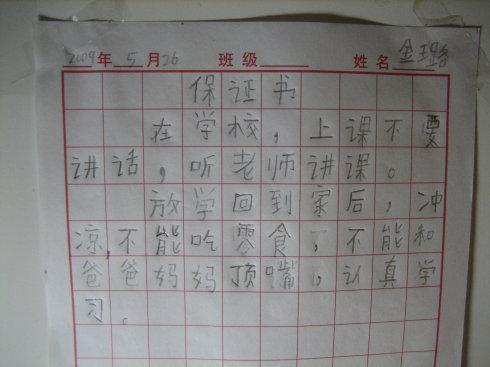 2009年5月26 班级 姓名金玉路
保证书
在学校，上课不要
讲话，听老师讲课。
放学回到家后，冲
凉，不能吃零食，不能和
爸爸妈妈顶嘴，认真学
习。